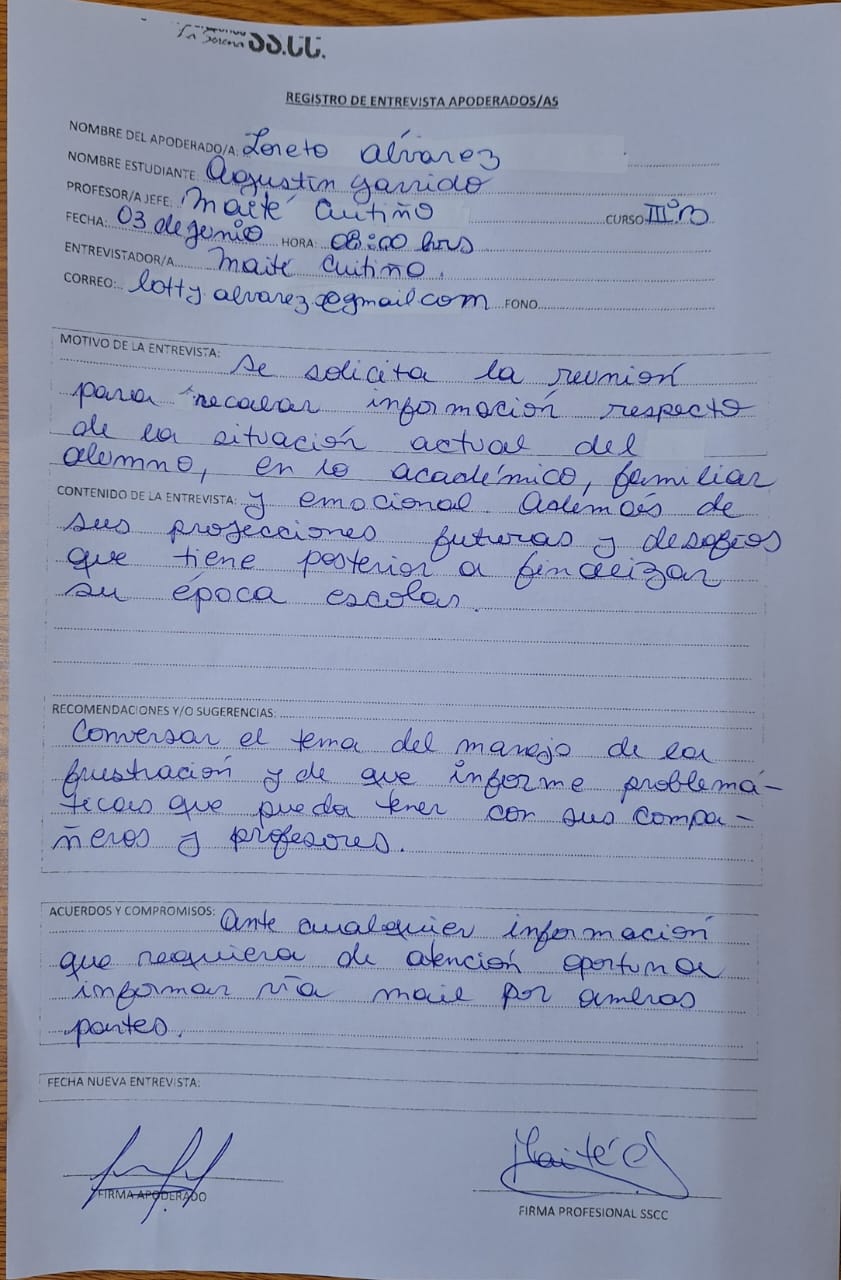 La Serena SS.CC.
REGISTRO DE ENTREVISTA APODERADOS/AS
NOMBRE DEL APODERADO/A: Loreto Alvarez
NOMBRE ESTUDIANTE: Agustín Garrido
PROFESOR/A JEFE: Maité Cutiño CURSO IIIºB
FECHA: 03 de junio HORA: 08:00 hrs
ENTREVISTADOR/A Maité Cutiño.
CORREO: lotty.alvarez.@gmail.com FONO
MOTIVO DE LA ENTREVISTA: Se solicita la reunión
para recabar información respecto
de la situación actual del
alumno, en lo académico, familiar
CONTENIDO DE LA ENTREVISTA: y emocional. Además de
sus projecciones futuras y desafíos
que tiene posterior a finalizar
su época escolar.
RECOMENDACIONES Y/O SUGERENCIAS:
Conversar el tema del manejo de la
frustración y de que informe problemá-
ticas que pueda tener con sus compa-
ñeros y profesores.
ACUERDOS Y COMPROMISOS: Ante cualquier información
que requiera de atención oportuna
informar vía mail por ambas
partes.
FECHA NUEVA ENTREVISTA:
Maité C
FIRMA APODERADO
FIRMA PROFESIONAL SSCC